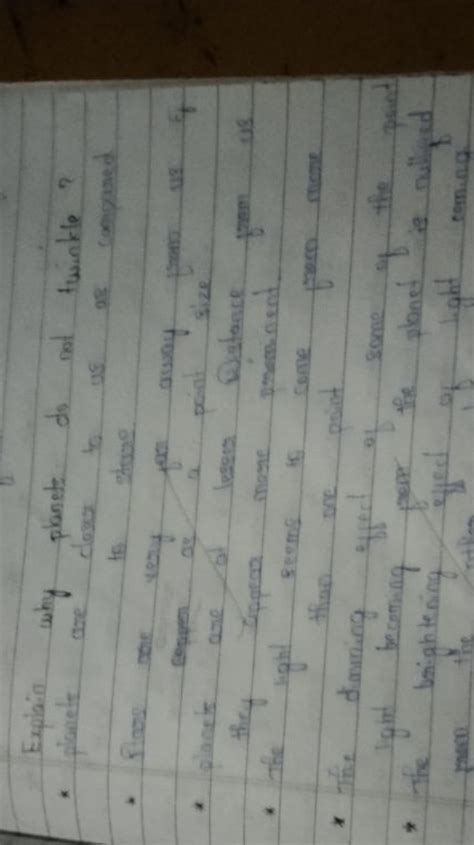 Explain why planets do not twinkle ?
* planets are closer to us as compared
to stars
* These are very far away from us &
appear as a point size
* planets are at lesser Distance from us
they appear more prominent
* The light seems to come from more
than one point
* The dimming effect of some of the point
light becoming from the planet is nullified
* The brightening effect of light coming
from the